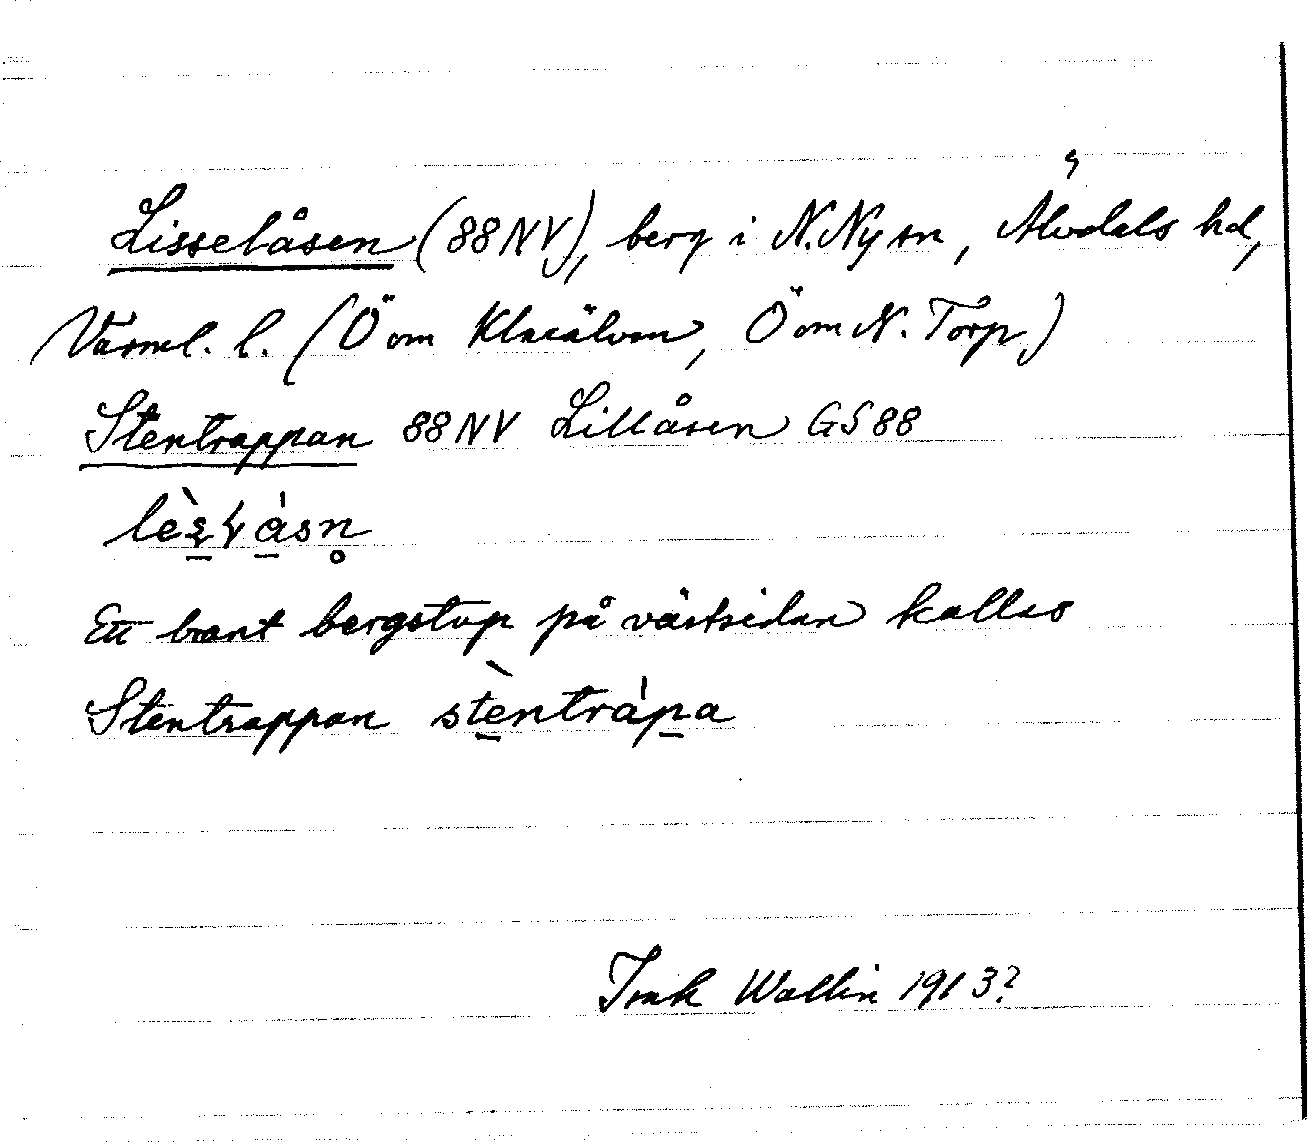 Lisselåsen (88NV), berg i N.Ny sn, Älvdals hd,
Värml. l. (Ö om Klarälven, Ö om N. Torp)
Stentrappan 88NV Lillåsen GS88
Ett brant bergstup på västsidan kallas
Stentrappan stèntrápa
Wallin 1913?